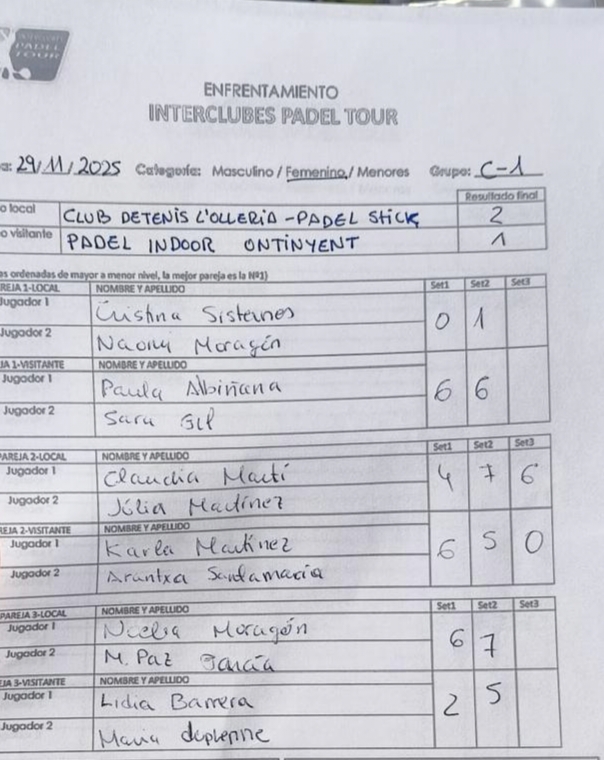 PADEL
TOUR
ENFRENTAMIENTO
INTERCLUBES PADEL TOUR
a: 29/11/2025 Categoría: Masculino / Femenino / Menores Grupo: C-1
Resultado final
o local CLUB DETENIS L'OLLERIA - PADEL STICK 2
o visitante PADEL INDOOR ONTINYENT 1
as ordenadas de mayor a menor nivel, la mejor pareja es la Nº1)
REJA 1-LOCAL NOMBRE Y APELLIDO Set1 Set2 Set3
Jugador 1 Cristina Sisternes 0 1
Jugador 2 Naomi Moragón
JA 1-VISITANTE NOMBRE Y APELLIDO
Jugador 1 Paula Albiñana 6 6
Jugador 2 Sara Gil
PAREJA 2-LOCAL NOMBRE Y APELLIDO Set1 Set2 Set3
Jugador 1 Claudia Martí 4 7 6
Jugador 2 Júlia Martínez
REJA 2-VISITANTE NOMBRE Y APELLIDO
Jugador 1 Karla Martínez 6 5 0
Jugador 2 Arantxa Santamaría
PAREJA 3-LOCAL NOMBRE Y APELLIDO Set1 Set2 Set3
Jugador 1 Noelia Moragón 6 7
Jugador 2 M. Paz García
JA 3-VISITANTE NOMBRE Y APELLIDO
Jugador 1 Lidia Barrera 2 5
Jugador 2 Maria